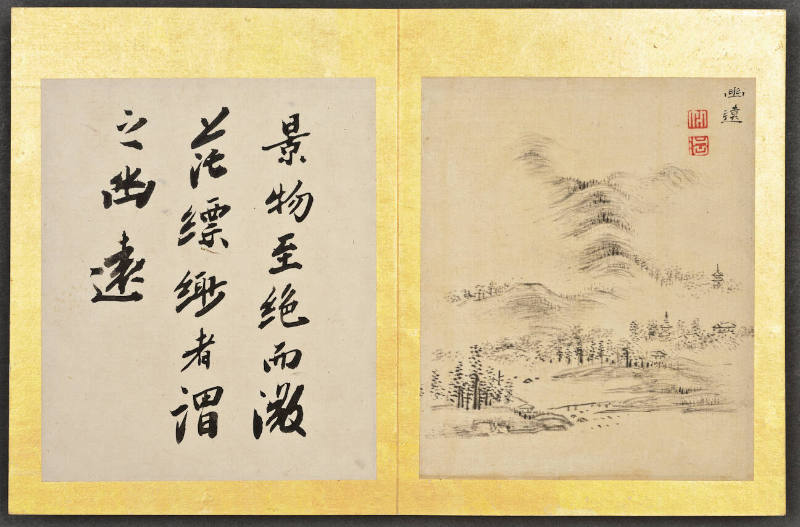 景物至絶而微
茫縹緲者謂
之幽遠
幽遠